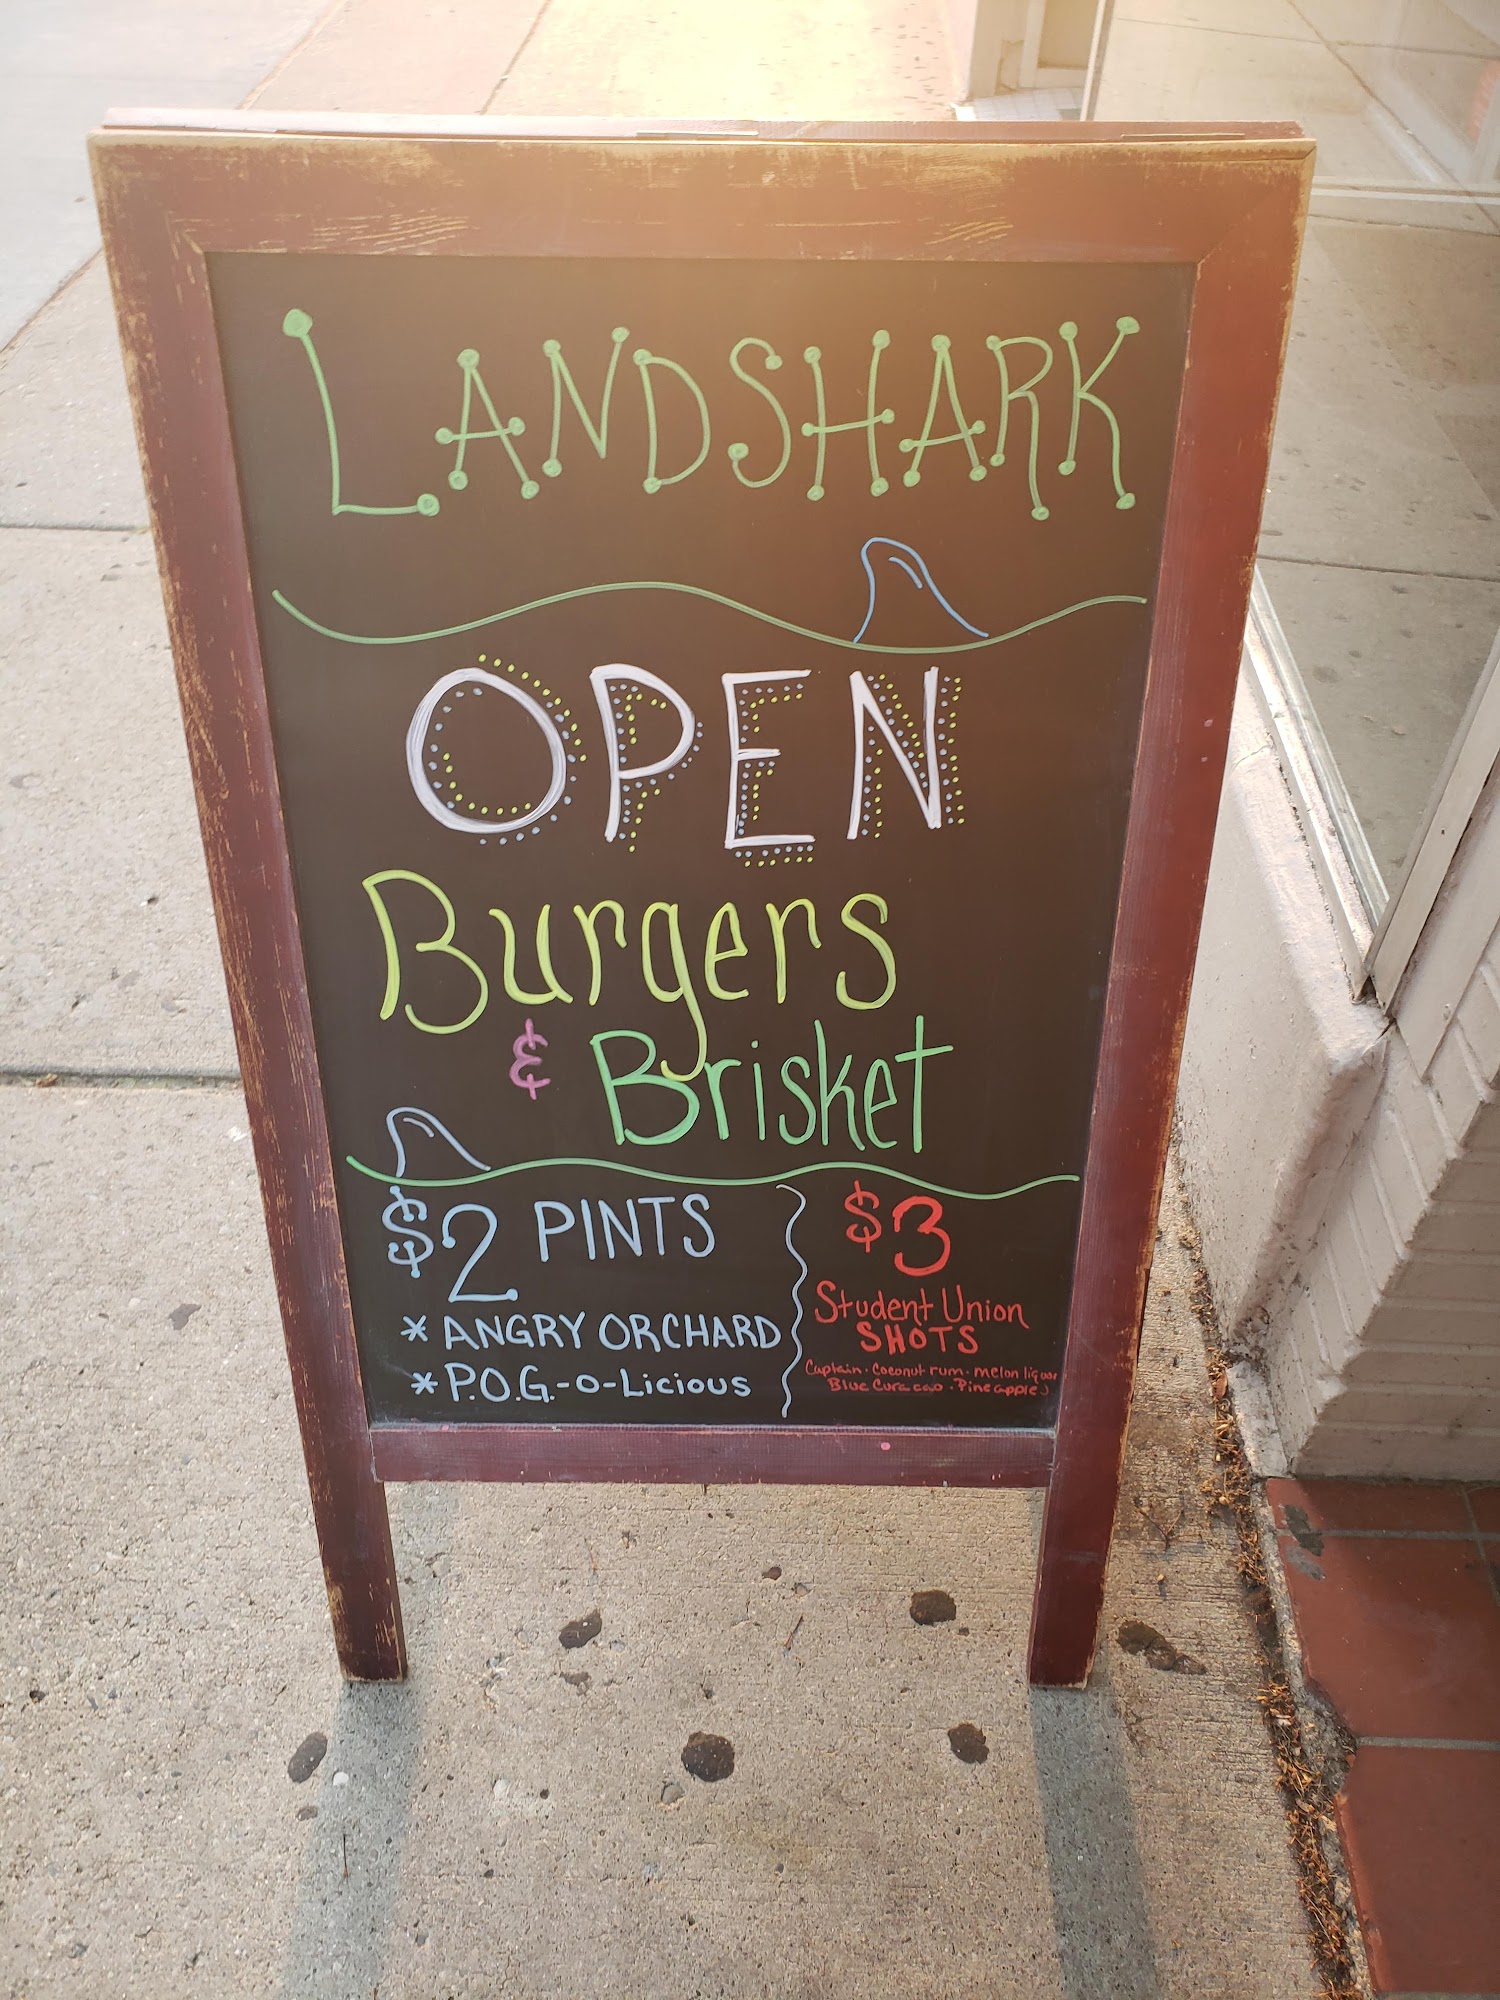 LANDSHARK
OPEN
Burgers
& Brisket
$2 PINTS
* ANGRY ORCHARD
* P.O.G.-O-Licious
$3
Student Union
SHOTS
Captain · Coconut rum · melon liquor
Blue Curacao · Pineapple J